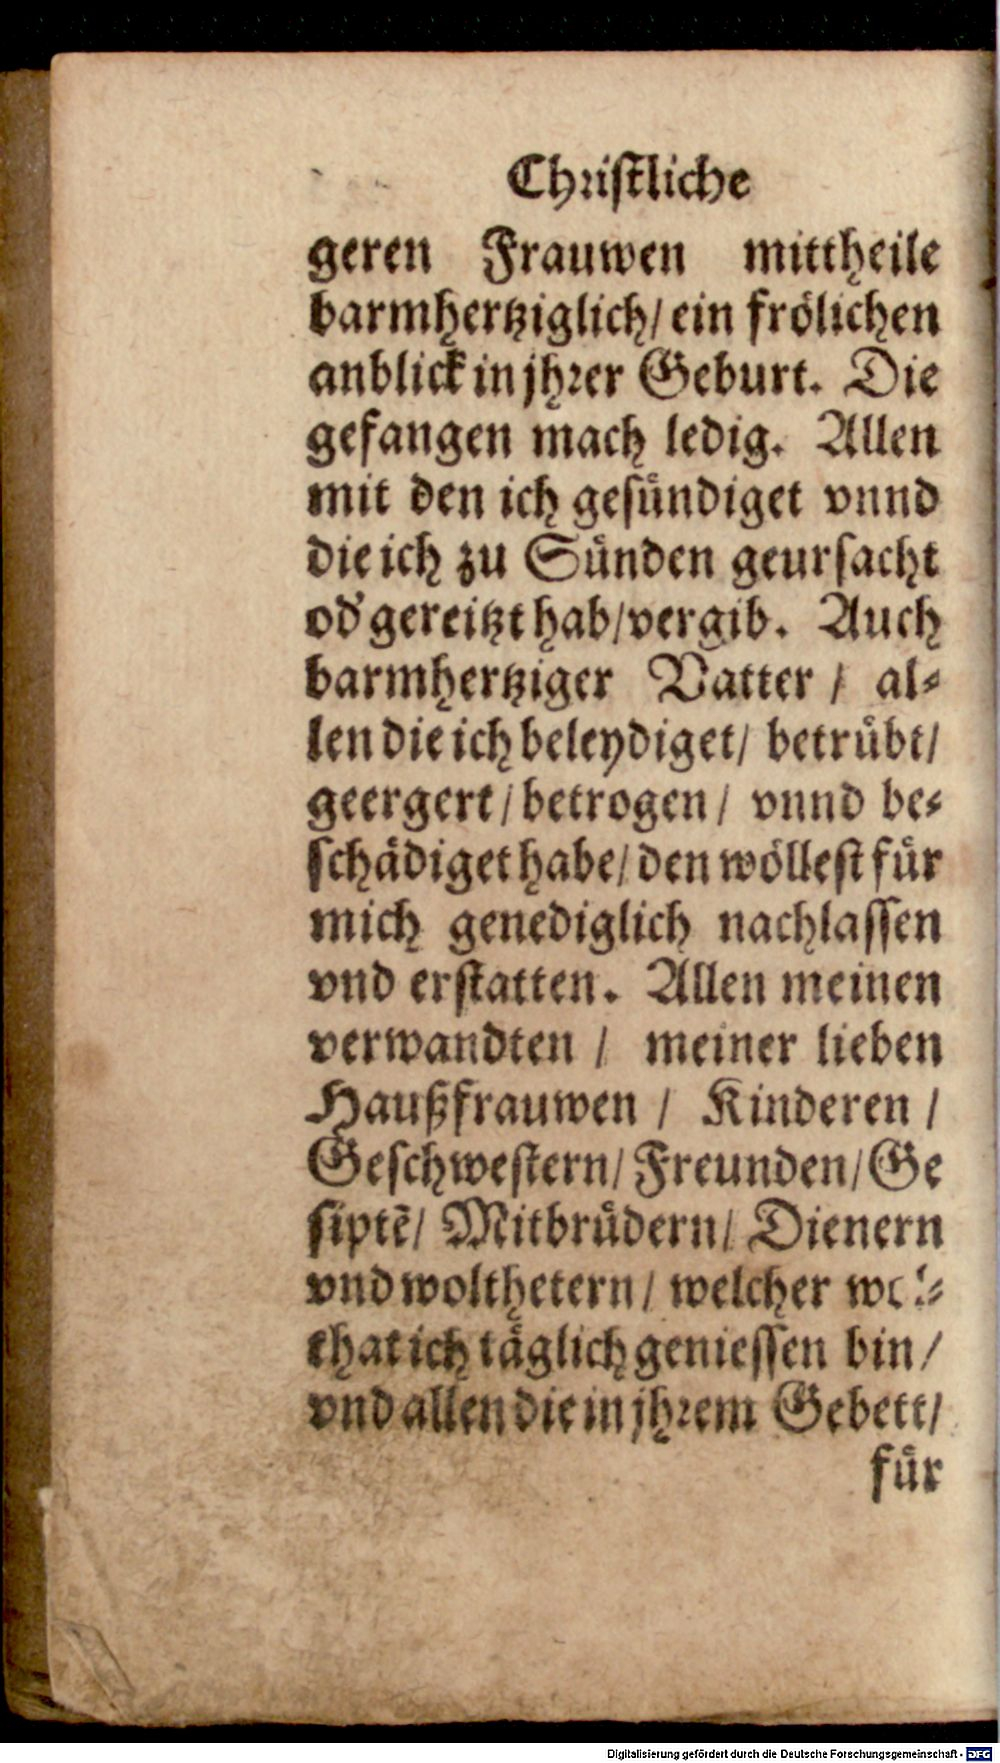 Christliche
geren Frauwen mittheile
barmhertziglich/ ein frölichen
anblick in jhrer Geburt. Die
gefangen mach ledig. Allen
mit den ich gesündiget vnnd
die ich zu Sünden geursacht
od' gereitzt hab/ vergib. Auch
barmhertziger Vatter / al⸗
len die ich beleydiget/ betrübt/
geergert/ betrogen/ vnnd be⸗
schädiget habe/ den wöllest für
mich genediglich nachlassen
vnd erstatten. Allen meinen
verwandten / meiner lieben
Haußfrauwen / Kinderen /
Geschwestern/ Freunden/ Ge
siptē/ Mitbrüdern/ Dienern
vnd wolthetern/ welcher wol⸗
that ich täglich geniessen bin/
vnd allen die in jhrem Gebett/
für
Digitalisierung gefördert durch die Deutsche Forschungsgemeinschaft - DFG